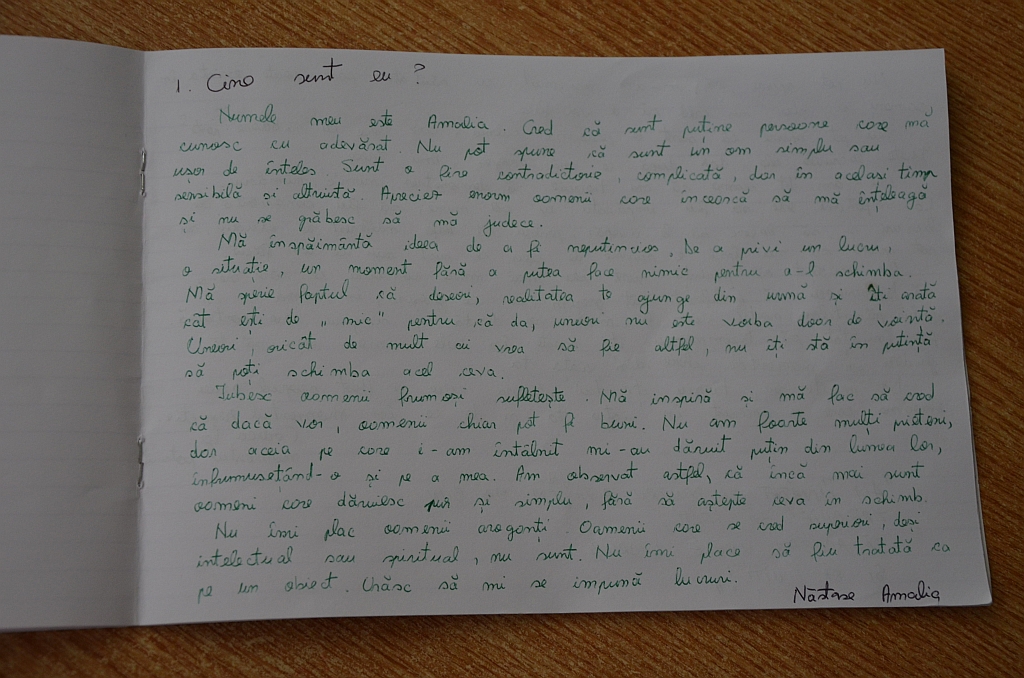 1. Cine sunt eu ?
Numele meu este Amalia. Cred că sunt puține persoane care mă
cunosc cu adevărat. Nu pot spune că sunt un om simplu sau
ușor de înțeles. Sunt o fire contradictorie, complicată, dar în același timp
sensibilă și altruistă. Apreciez enorm oamenii care încearcă să mă înțeleagă
și nu se grăbesc să mă judece.
Mă înspăimântă ideea de a fi neputincios. De a privi un lucru,
o situație, un moment fără a putea face nimic pentru a-l schimba.
Mă sperie faptul că deseori, realitatea te ajunge din urmă și îți arată
cât ești de „mic" pentru că da, uneori nu este vorba doar de voință.
Uneori, oricât de mult ai vrea să fie altfel, nu îți stă în putință
să poți schimba acel ceva.
Iubesc oamenii frumoși sufletește. Mă inspiră și mă fac să cred
că dacă vor, oamenii chiar pot fi buni. Nu am foarte mulți prieteni,
dar aceia pe care i-am întâlnit mi-au dăruit puțin din lumea lor,
înfrumusețând-o și pe a mea. Am observat astfel, că încă mai sunt
oameni care dăruiesc pur și simplu, fără să aștepte ceva în schimb.
Nu îmi plac oamenii aroganți. Oamenii care se cred superiori, deși
intelectual sau spiritual, nu sunt. Nu îmi place să fiu tratată ca
pe un obiect. Urăsc să mi se impună lucruri.
Năstase Amalia